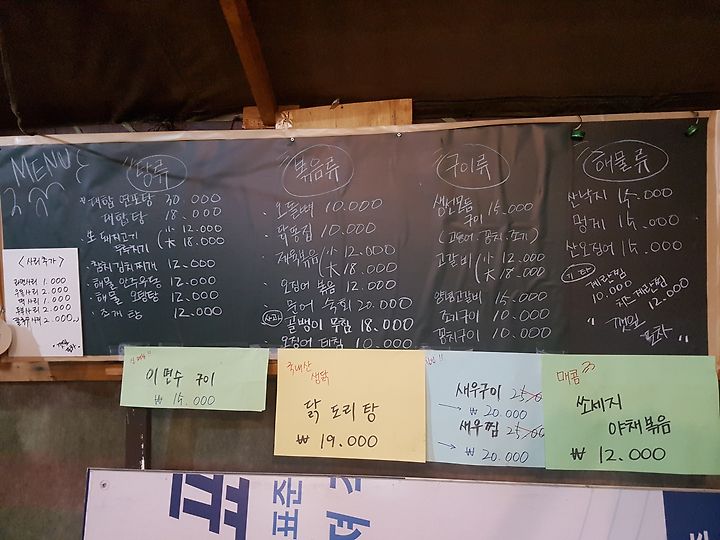 MENU
<사리추가>
라면사리 1.000
우동사리 2.000
떡사리 1.000
두부사리 2.000
2.000
"탕류"
대합 연포탕 30.000
대합탕 18.000
돼지고기 두루치기 (小 12.000
(大 18.000
참치김치찌개 12.000
해물 안주우동 12.000
해물 오뎅탕 12.000
조개탕 12.000
"볶음류"
오돌뼈 10.000
닭똥집 10.000
제육볶음 (小 12.000
(大 18.000
오징어 볶음 12.000
문어 숙회 20.000
골뱅이 무침 18.000
오징어 데침 10.000
"구이류"
생선모듬
구이 15.000
(고등어. 꽁치. 조기)
고갈비 (小 12.000
(大 18.000
양념고갈비 15.000
조기구이 10.000
꽁치구이 10.000
"해물류"
산낙지 15.000
멍게 15.000
산오징어 15.000
기타
계란찜
10.000
치즈계란찜
12.000
" 깻잎
이면수 구이
₩ 15.000
국내산
생닭
닭 도리 탕
₩ 19.000
새우구이 25.00
→ ₩ 20.000
새우찜 25.00
→ ₩ 20.000
매콤
쏘세지
야채볶음
₩ 12.000
표준